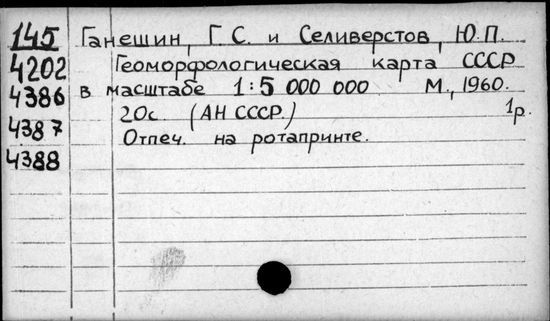 145 Ганешин, Г.С. и Селиверстов, Ю.П.
4202 Геоморфологическая карта СССР
4386 в масштабе 1:5 000 000 М., 1960.
20с. (АН СССР.) 1р.
4387 Отпеч. на ротапринте.
4388